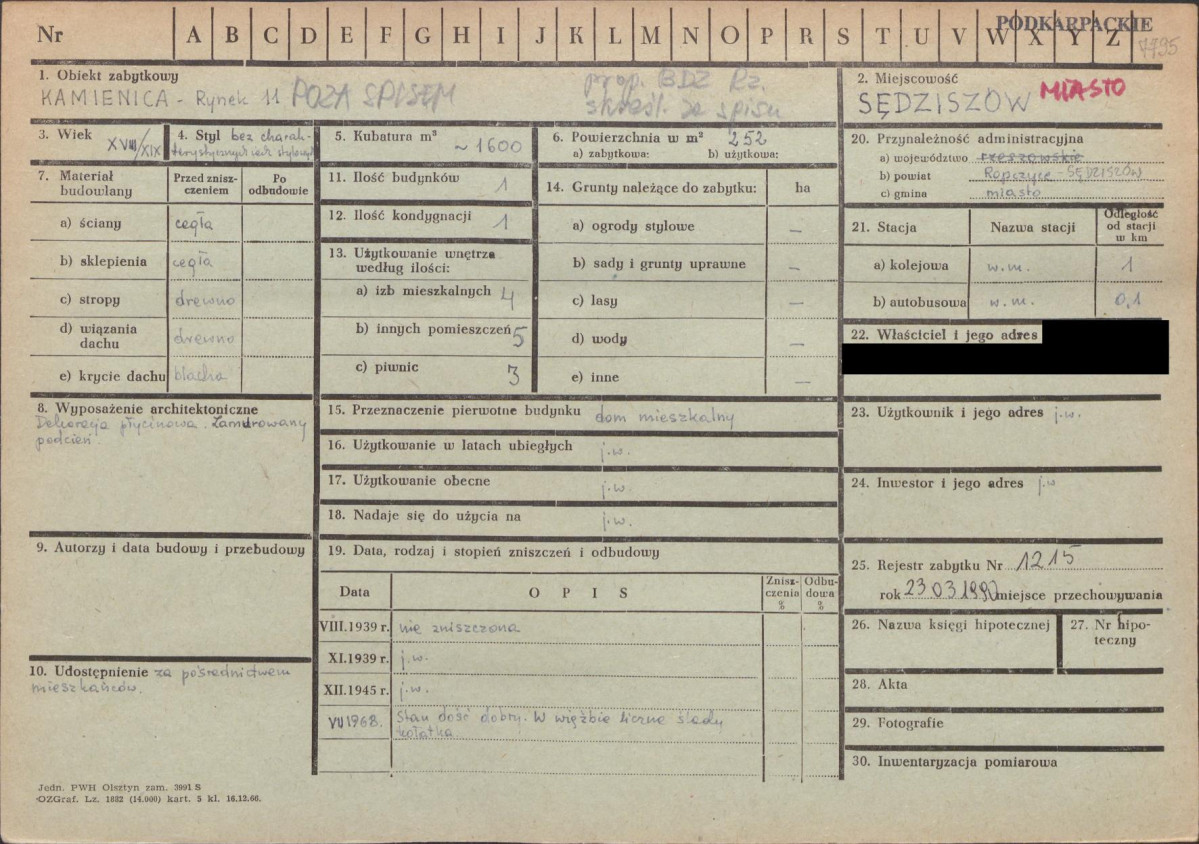 PODKARPACKIE
Nr A B C D E F G H I J K L M N O P R S T U V W X Y Z
7795
1. Obiekt zabytkowy
KAMIENICA - Rynek 11 POZA SPISEM
prop. BDZ Rz.
skreśl. ze spisu
2. Miejscowość
SĘDZISZÓW MIASTO
3. Wiek XVIII/XIX
4. Styl bez charak-
terystycznych cech stylowych
5. Kubatura m³
~ 1600
6. Powierzchnia w m² 252
a) zabytkowa: b) użytkowa:
20. Przynależność administracyjna
a) województwo rzeszowskie
b) powiat Ropczyce - SĘDZISZÓW
c) gmina miasto
7. Materiał
budowlany
Przed znisz-
czeniem
Po
odbudowie
a) ściany cegła
b) sklepienia cegła
c) stropy drewno
d) wiązania
dachu drewno
e) krycie dachu blacha
11. Ilość budynków 1
12. Ilość kondygnacji 1
13. Użytkowanie wnętrza
według ilości:
a) izb mieszkalnych 4
b) innych pomieszczeń 5
c) piwnic 3
14. Grunty należące do zabytku: ha
a) ogrody stylowe –
b) sady i grunty uprawne –
c) lasy –
d) wody –
e) inne –
21. Stacja Nazwa stacji
Odległość
od stacji
w km
a) kolejowa w.m. 1
b) autobusowa w.m. 0,1
22. Właściciel i jego adres
8. Wyposażenie architektoniczne
Dekoracja płycinowa. Zamurowany
podcień.
15. Przeznaczenie pierwotne budynku dom mieszkalny
16. Użytkowanie w latach ubiegłych j.w.
17. Użytkowanie obecne j.w.
18. Nadaje się do użycia na j.w.
23. Użytkownik i jego adres j.w.
24. Inwestor i jego adres j.w
9. Autorzy i data budowy i przebudowy
19. Data, rodzaj i stopień zniszczeń i odbudowy
Data OPIS
Znisz-
czenia
%
Odbu-
dowa
%
VIII.1939 r. nie zniszczona
XI.1939 r. j.w.
XII.1945 r. j.w.
VII 1968. Stan dość dobry. W więźbie liczne ślady
kołatka.
25. Rejestr zabytku Nr 1215
rok 23.03.1990 miejsce przechowywania
26. Nazwa księgi hipotecznej
27. Nr hipo-
teczny
10. Udostępnienie za pośrednictwem
mieszkańców.
28. Akta
29. Fotografie
30. Inwentaryzacja pomiarowa
Jedn. PWH Olsztyn zam. 3991 S
OZGraf. Lz. 1882 (14.000) kart. 5 kl. 16.12.66.